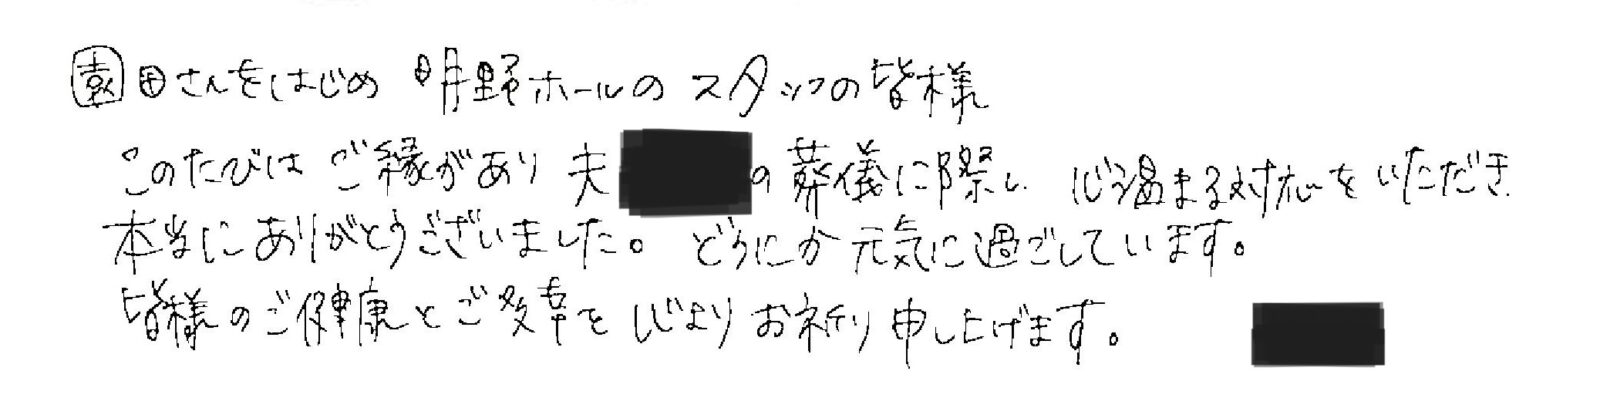 園田さんをはじめ 明野ホールのスタッフの皆様
このたびは ご縁があり 夫の葬儀に際し 心温まる対応をいただき
本当にありがとうございました。どうにか元気に過ごしています。
皆様のご健康とご多幸を心よりお祈り申し上げます。